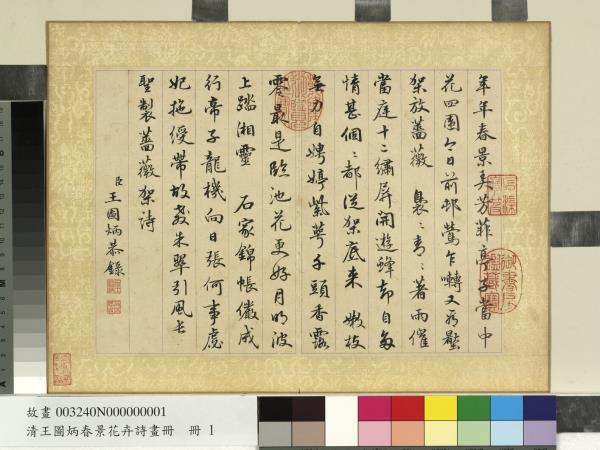 年年春景美芳菲亭子當中
花四圍今日前邨鶯乍囀又看壓
架放薔薇 裊〻青〻著雨催
當庭十二繡屏開遊蜂却自多
情甚個〻都從架底來 嫩枝
無力自娉婷紫萼千頭香露
零最是臨池花更好月明波
上踏湘靈 石家錦帳儼成
行帝子龍機向日張何事虙
妃拖綬帶故教朱翠引風長
聖製薔薇架詩
臣王圖炳恭錄
故畫 003240N000000001
清王圖炳春景花卉詩畫冊 冊 1